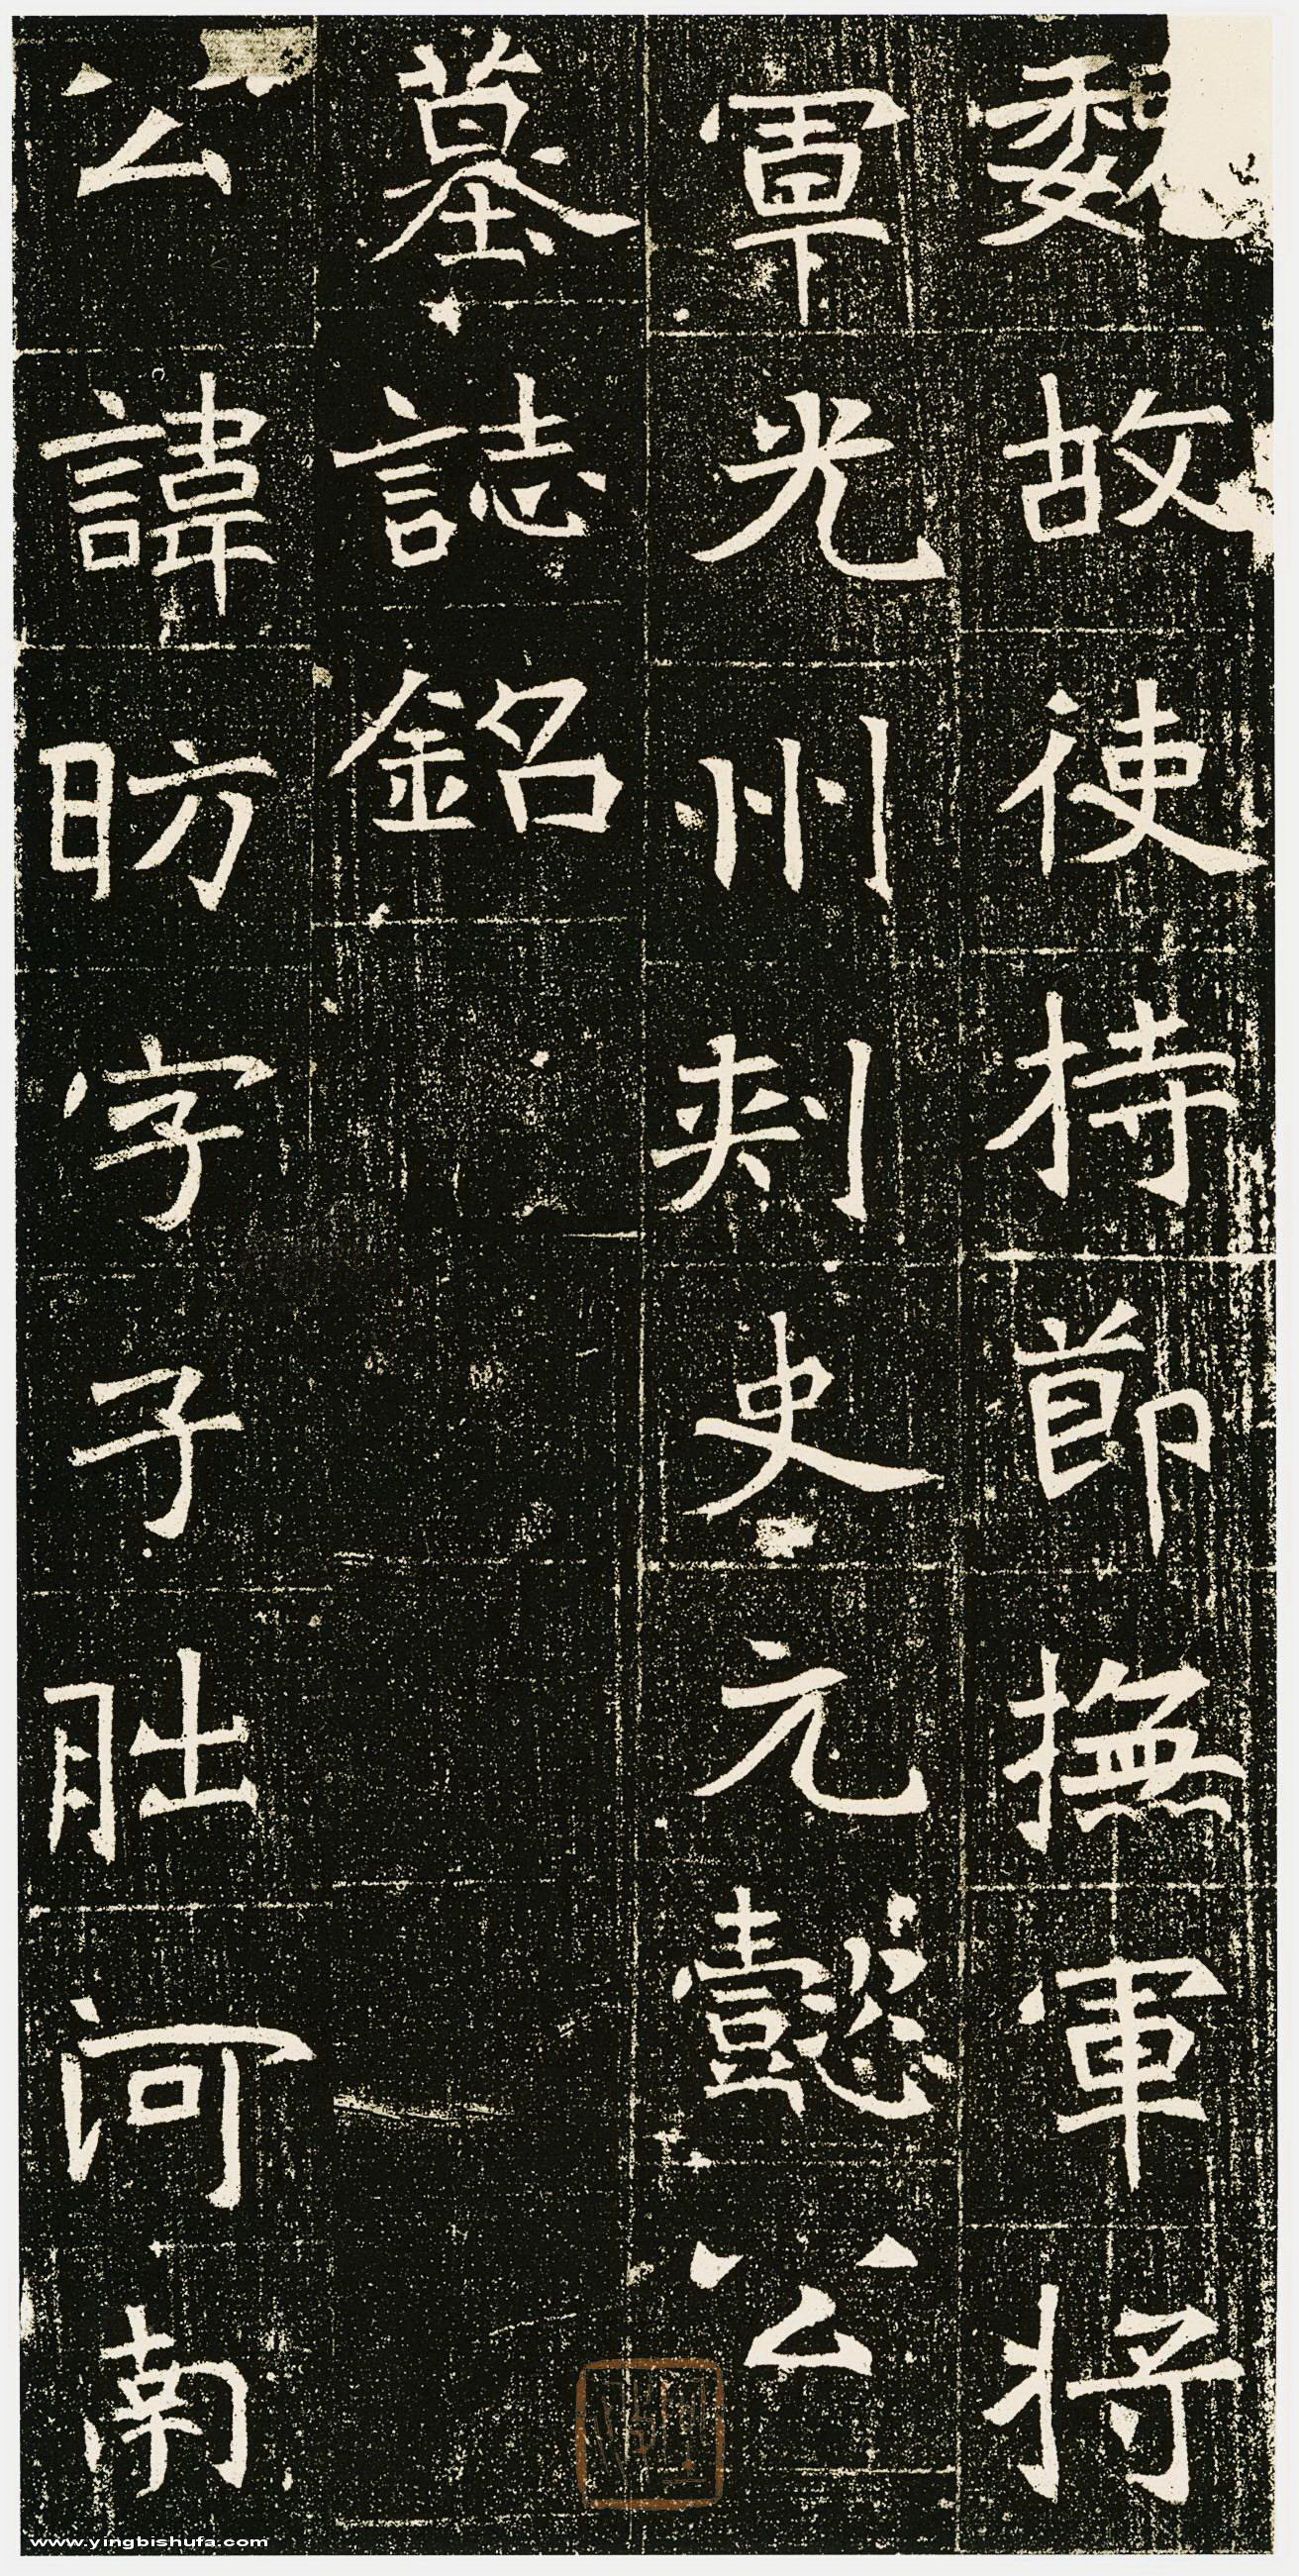 魏故使持節撫軍將
軍光州刺史元懿公
墓誌銘
公諱昉字子朏河南
www.yingbishufa.com